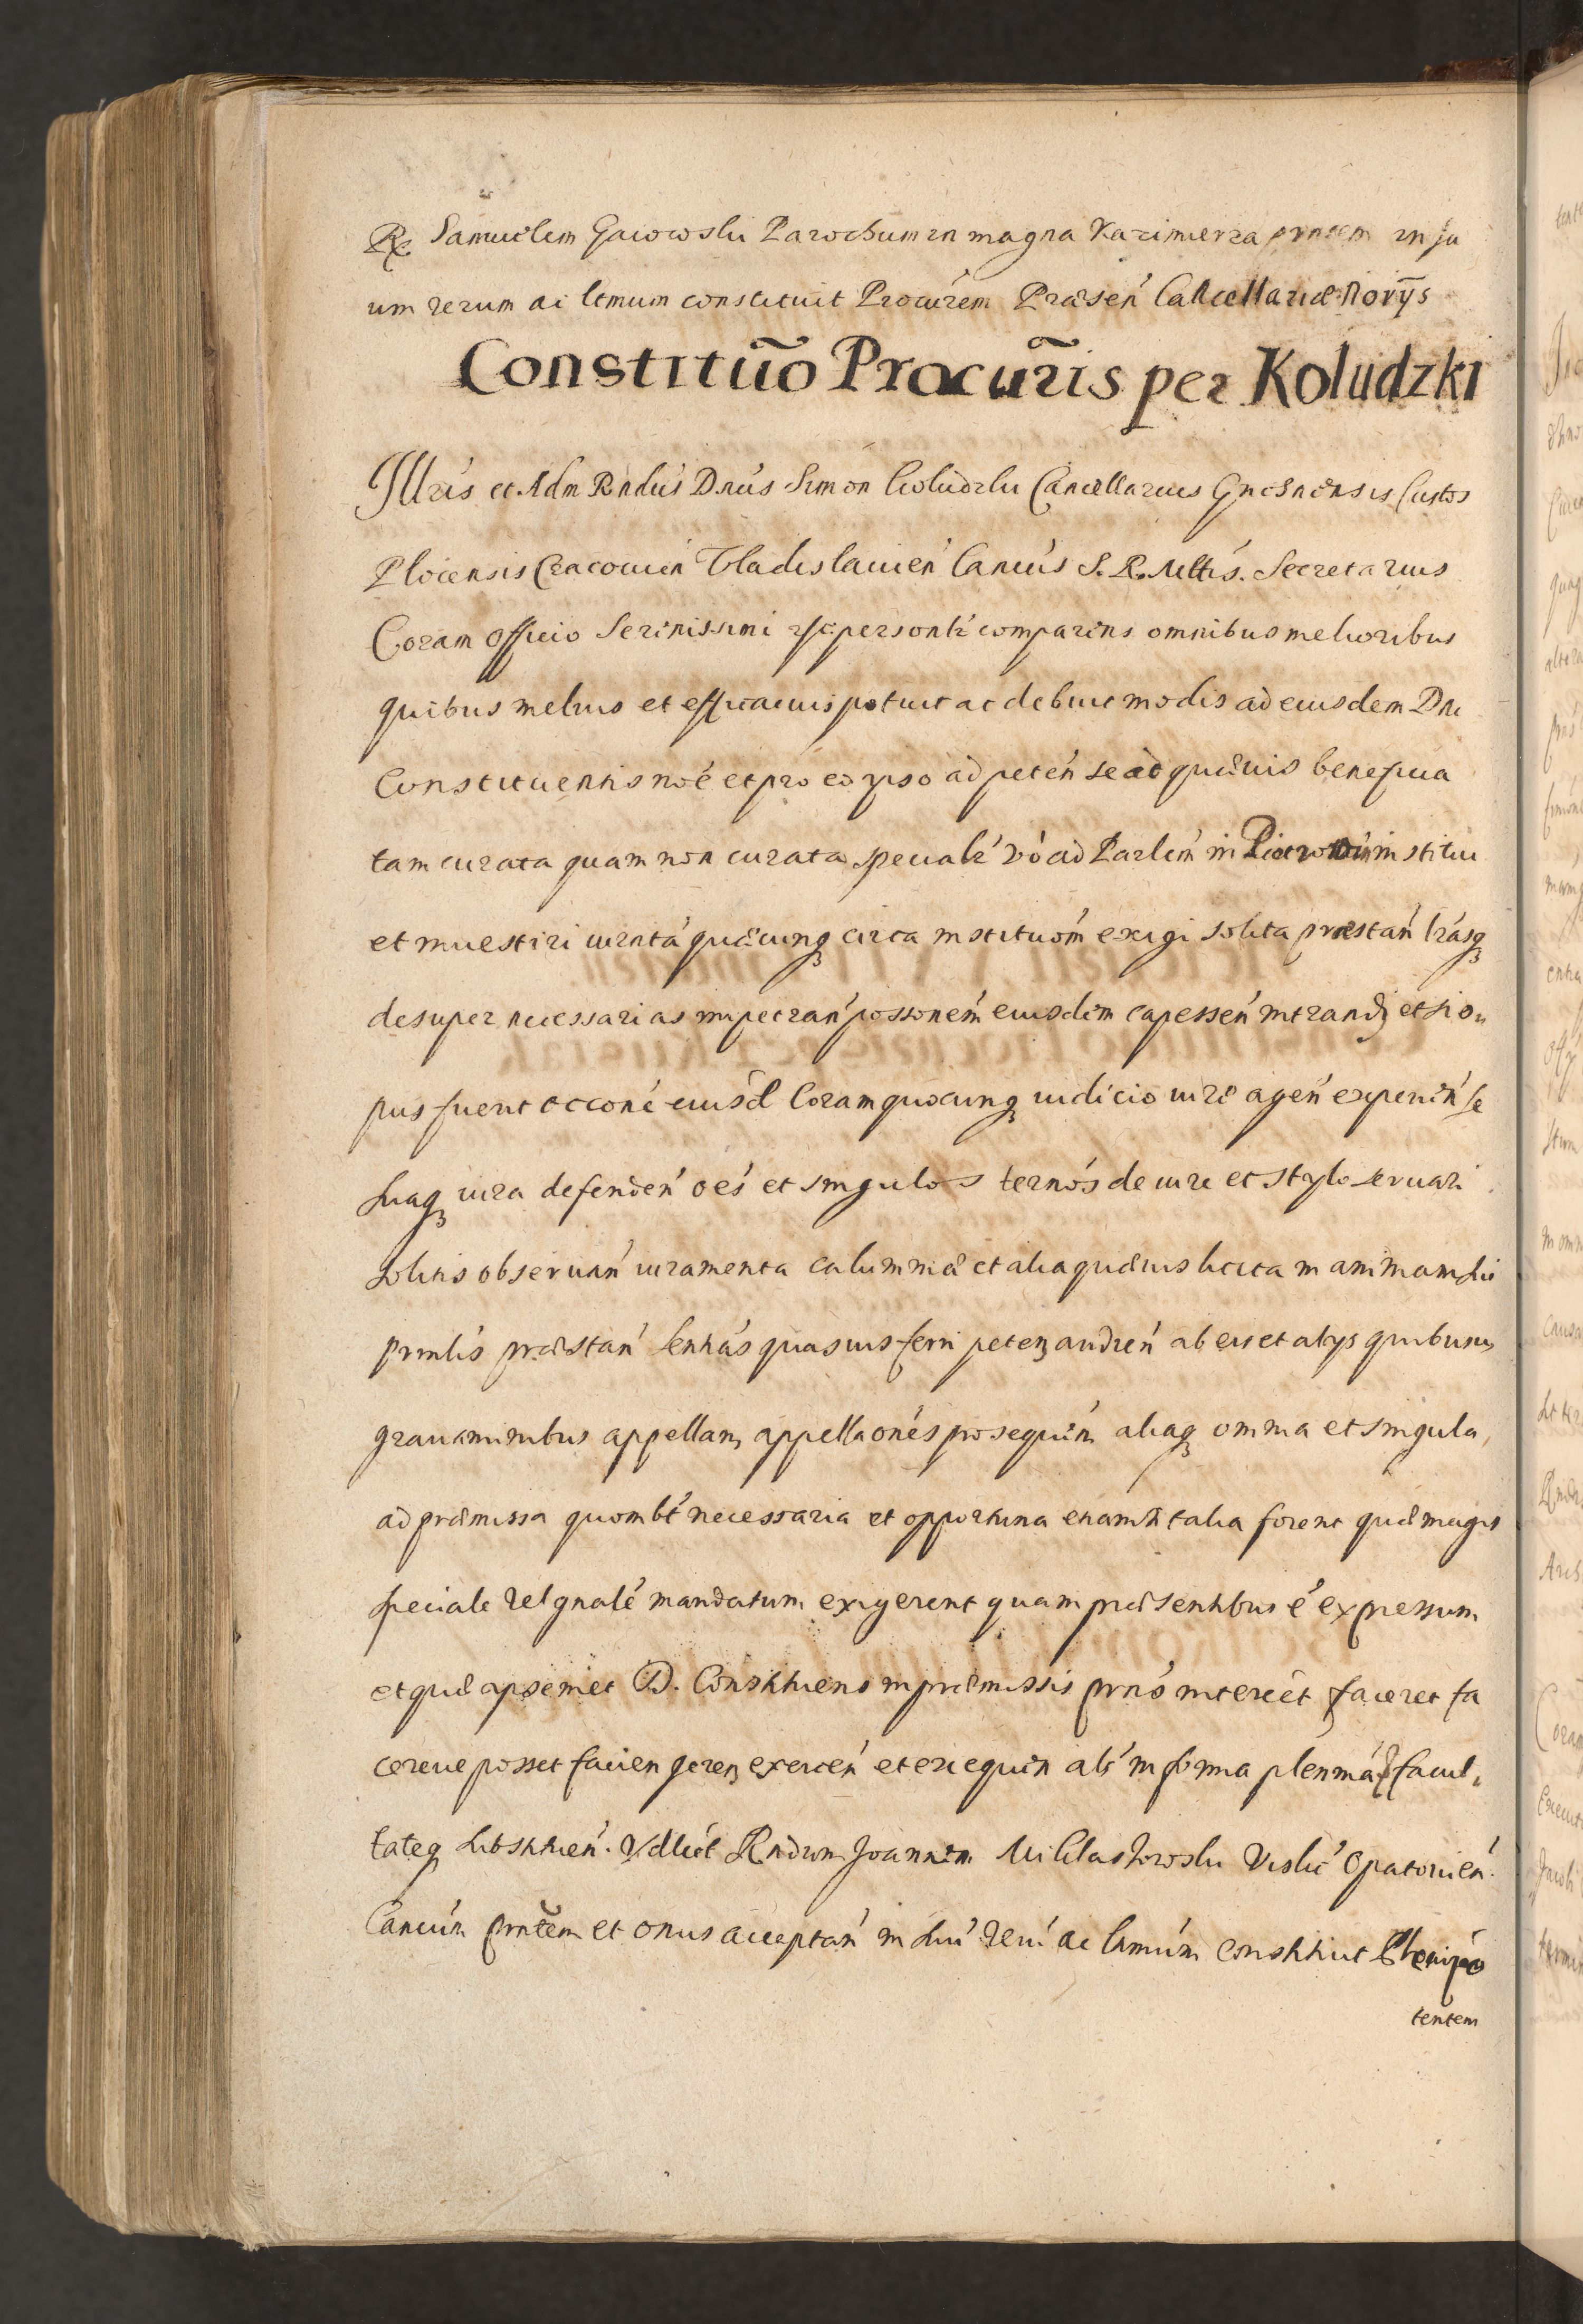 Rx Samuelem Gaiowski Parochum in magna Kazimierza prntem in su
um verum ac ltmum constituit Procurem Praesen Cancellariae Norys
Constituo Procuris per Koludzki
Illris et Adm Rndus Dnus Simon Koludzki Cancellarius Gnesnensis Custos
Plocensis Cracouien Vladislauien Cancus S. R. Mttis. Secretarius
Coram officio Serenissimi rsc personlr comparens omnibus melioribus
quibus melius et efficacius potuit ac debuit modis ad eiusdem Dni
Constituentis noe et pro eo ipso ad peten se ad quaeuis beneficia
tam curata quam non curata specialr vo ad Parlem in institui
et inuestiri iurnta quaecunq circa institutom exigi solita praestan lrasq
desuper necessarias impetran possonem eiusdem capessen intrandj et si o
pus fuerit occone eiusd Coram quocunq iudicio iure agen experien se
suaq iura defenden oes et singulos ternos de iure et stylo seruari
solitis obseruan iuramenta calumniae et alia quaeuis licita in animam sui
prnlis praestan sentias quasuis ferri peten audien ab eis et alys quibusuis
grauaminibus appellan appellaones prosequen aliaq omnia et singula
ad praemissa quomlbt necessaria et opportuna etiam si talia forent quae magis
speciale vel gnale mandatum exigerent quam praesentibus e expressum
et quae ipsemet D. Constituens in praemissis prns interesset faceret fa
cereue posset facien geren exercen et exequen als in forma plenma facul
tateq substituen. Vdlict Rndum Joannem Vislic Opatouien.
Cancum prntem et onus acceptan in suu veru ac ltmum constituit Plenipo
tentem